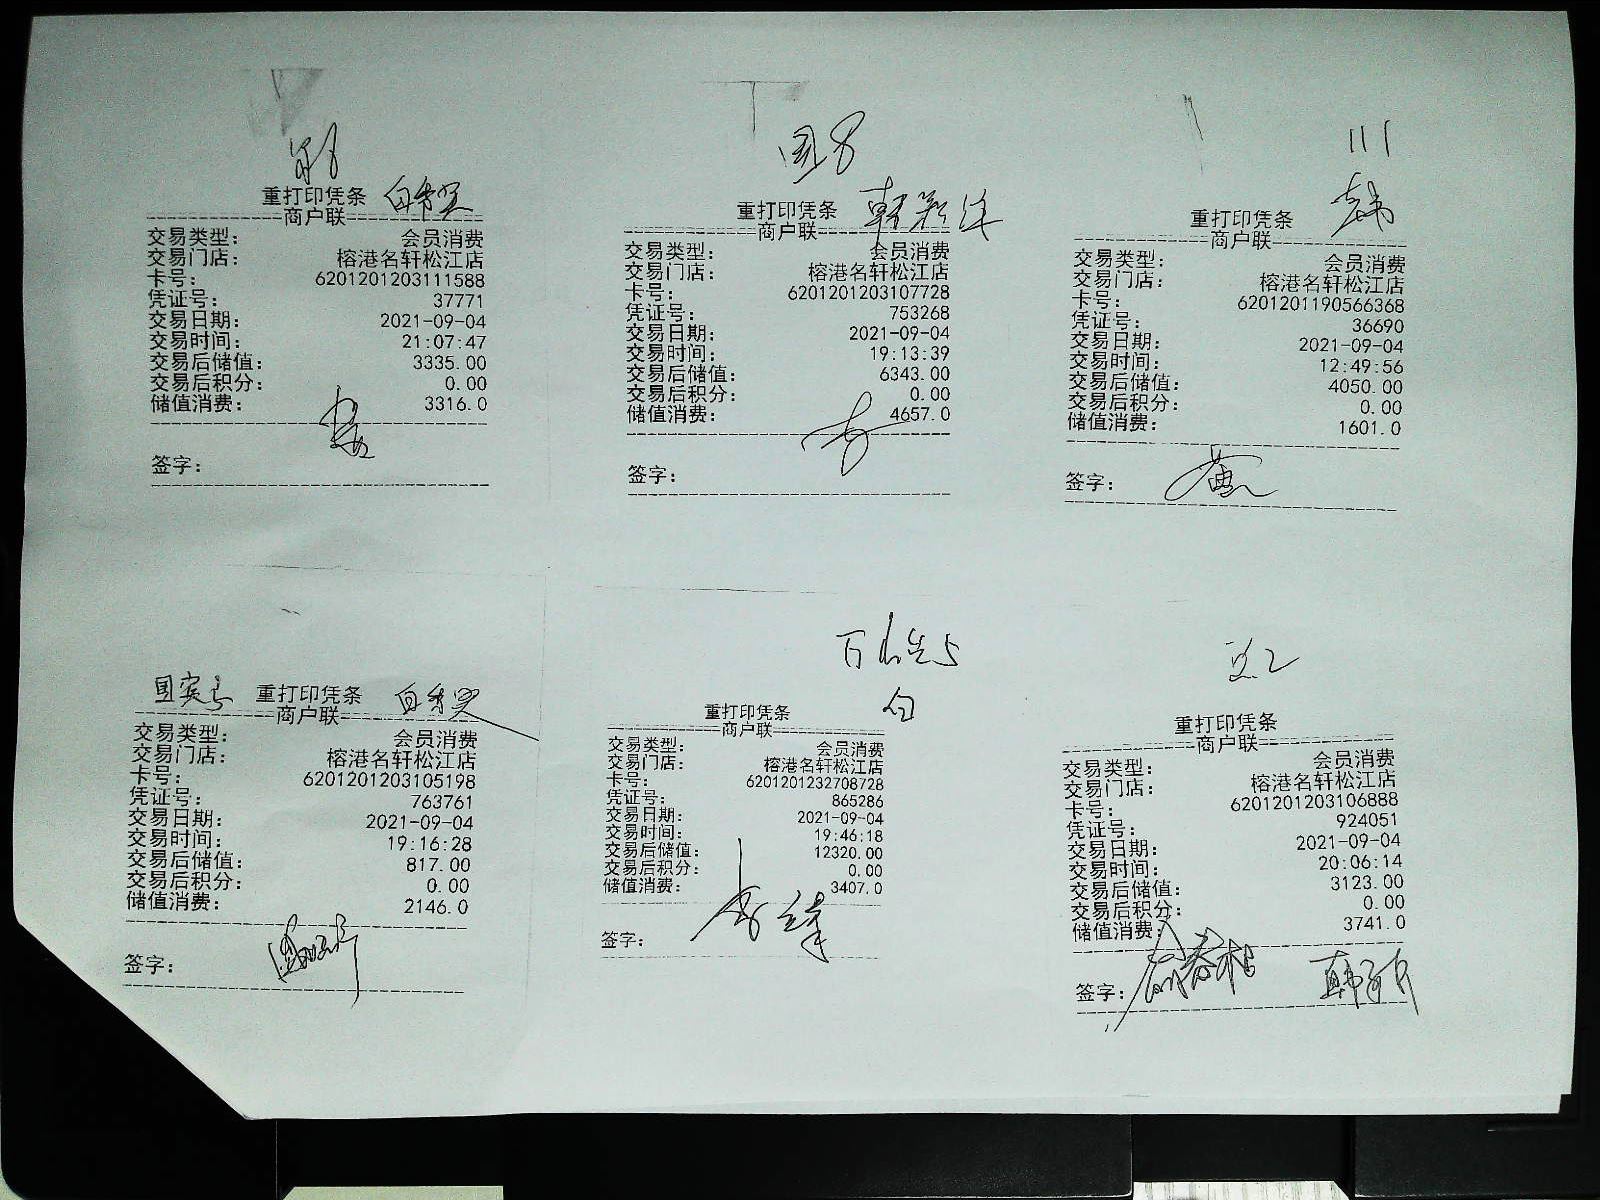 重打印凭条 白秀昊
商户联
交易类型： 会员消费
交易门店： 榕港名轩松江店
卡号： 6201201203111588
凭证号： 37771
交易日期： 2021-09-04
交易时间： 21:07:47
交易后储值： 3335.00
交易后积分： 0.00
储值消费： 3316.0
签字：
国8
重打印凭条
商户联
交易类型： 会员消费
交易门店： 榕港名轩松江店
卡号： 6201201203107728
凭证号： 753268
交易日期： 2021-09-04
交易时间： 19:13:39
交易后储值： 6343.00
交易后积分： 0.00
储值消费： 4657.0
签字：
111
韩
重打印凭条
商户联
交易类型： 会员消费
交易门店： 榕港名轩松江店
卡号： 6201201190566368
凭证号： 36690
交易日期： 2021-09-04
交易时间： 12:49:56
交易后储值： 4050.00
交易后积分： 0.00
储值消费： 1601.0
签字： 黄
国宾 重打印凭条
商户联
交易类型： 会员消费
交易门店： 榕港名轩松江店
卡号： 6201201203105198
凭证号： 763761
交易日期： 2021-09-04
交易时间： 19:16:28
交易后储值： 817.00
交易后积分： 0.00
储值消费： 2146.0
签字：
白
重打印凭条
商户联
交易类型： 会员消费
交易门店： 榕港名轩松江店
卡号： 6201201232708728
凭证号： 865286
交易日期： 2021-09-04
交易时间： 19:46:18
交易后储值： 12320.00
交易后积分： 0.00
储值消费： 3407.0
签字：
重打印凭条
商户联
交易类型： 会员消费
交易门店： 榕港名轩松江店
卡号： 6201201203106888
凭证号： 924051
交易日期： 2021-09-04
交易时间： 20:06:14
交易后储值： 3123.00
交易后积分： 0.00
储值消费： 3741.0
签字：